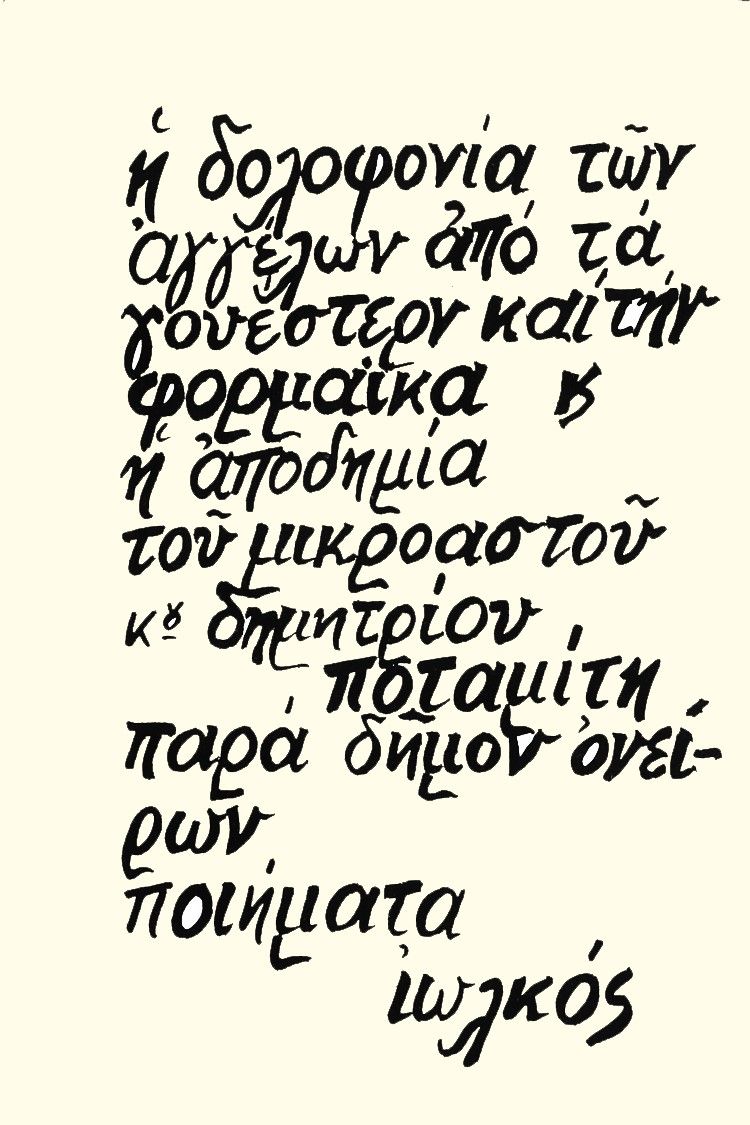 ἡ δολοφονία τῶν
ἀγγέλων ἀπό τά
γουέστερν καί τήν
φορμαϊκα ϗ
ἡ ἀποδημία
τοῦ μικροαστοῦ
κου δημητρίου
ποταμίτη
παρά δῆμον ὀνεί-
ρων
ποιήματα
ἰωλκός